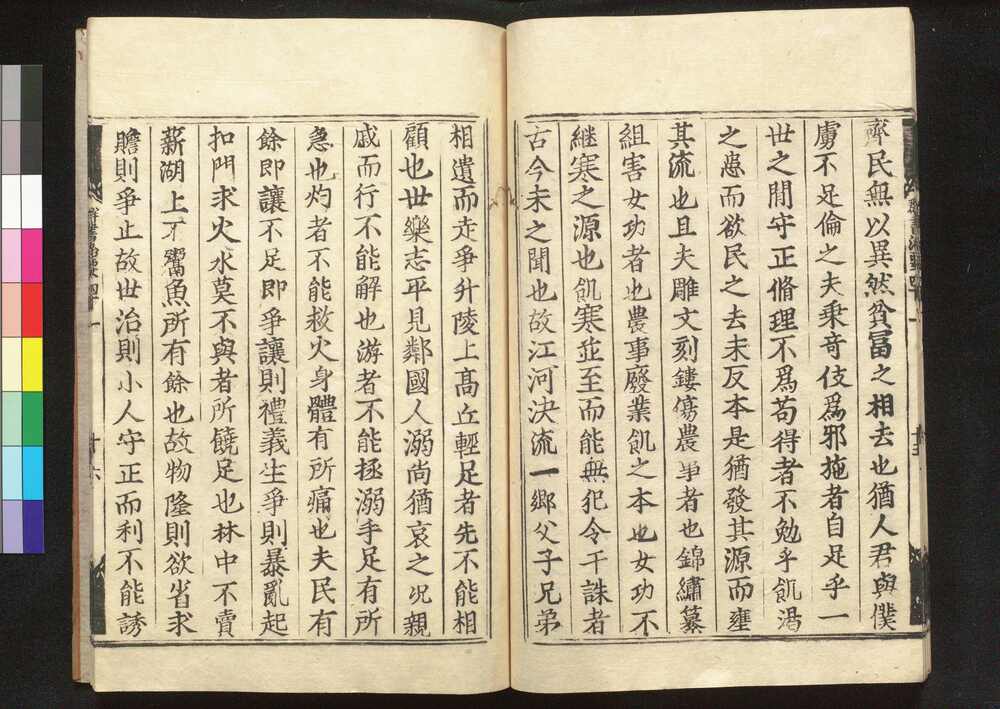 齊民無以異然貧冨之相去也猶人君與僕
虜不足倫之夫乗竒伎爲邪施者自足乎一
世之閒守正脩理不爲苟得者不勉乎飢渇
之患而欲民之去末反本是猶發其源而壅
其流也且夫雕文刻鏤傷農事者也錦繡纂
組害女功者也農事廢業飢之本也女功不
継寒之源也飢寒並至而能無犯令干誅者
古今未之聞也故江河決流一郷父子兄弟
相遺而走爭升陵上髙丘輕足者先不能相
顧也世樂志平見鄰國人溺尚猶哀之况親
戚而行不能解也游者不能拯溺手足有所
急也灼者不能救火身體有所痛也夫民有
餘即讓不足即爭讓則禮義生爭則暴亂起
扣門求火水莫不與者所饒足也林中不賣
薪湖上不鬻魚所有餘也故物隆則欲省求
贍則爭止故世治則小人守正而利不能誘
群書治要四十一
十六